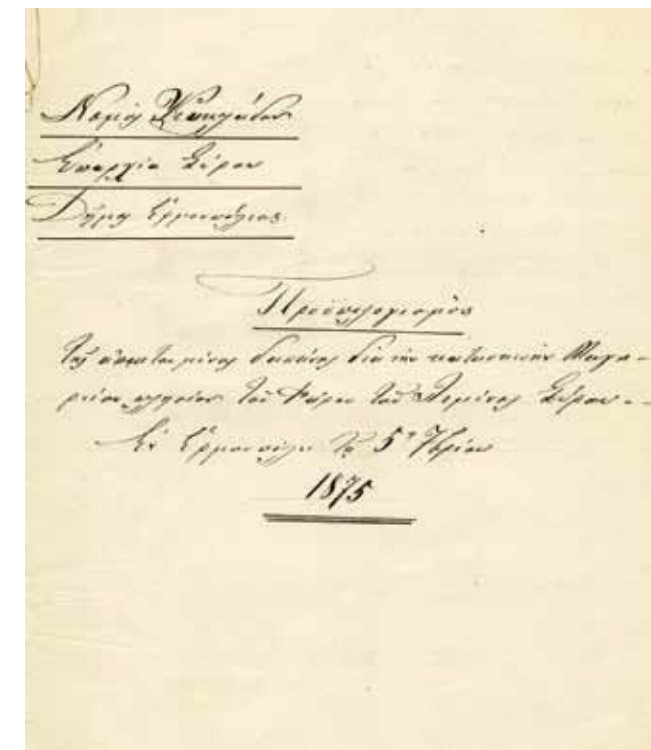 Νομός Κυκλάδων
Επαρχία Σύρου
Δήμος Ερμουπόλεως
Προϋπολογισμός
της απαιτουμένης δαπάνης δια την κατασκευήν Μαγει-
ρείου πλησίον του Φάρου του Λιμένος Σύρου.-
Εν Ερμουπόλει τη 5η 7βρίου
1875